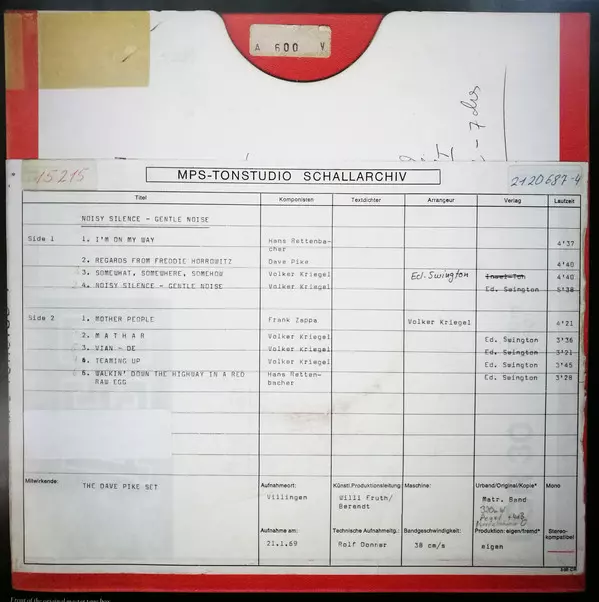 A 600 V
- 7 dus
15215
MPS-TONSTUDIO SCHALLARCHIV
2120687-4
Titel Komponisten Textdichter Arrangeur Verlag Laufzeit
NOISY SILENCE - GENTLE NOISE
Side 1 1. I'M ON MY WAY Hans Rettenba-
cher 4'37
2. REGARDS FROM FREDDIE HORROWITZ Dave Pike 4'40
3. SOMEWHAT, SOMEWHERE, SOMEHOW Volker Kriegel Ed. Swington Insel-Ton 4'40
4. NOISY SILENCE - GENTLE NOISE Volker Kriegel Ed. Swington 5'38
Side 2 1. MOTHER PEOPLE Frank Zappa Volker Kriegel 4'21
2. M A T H A R Volker Kriegel Ed. Swington 3'36
3. VIAN - DE Volker Kriegel Ed. Swington 3'21
4. TEAMING UP Volker Kriegel Ed. Swington 3'45
5. WALKIN' DOWN THE HIGHWAY IN A RED Hans Retten- Ed. Swington 3'28
RAW EGG bacher
Mitwirkende: THE DAVE PIKE SET
Aufnahmeort: Künstl.Produktionsleitung: Maschine: Urband/Original/Kopie* Mono
Villingen Willi Fruth/ Matr. Band
Berendt
Aufnahme am: Technische Aufnahmeltg.: Bandgeschwindigkeit: Produktion: eigen/fremd* Stereo-
kompatibel
21.1.69 Rolf Donner 38 cm/s eigen
Front of the original master tape box